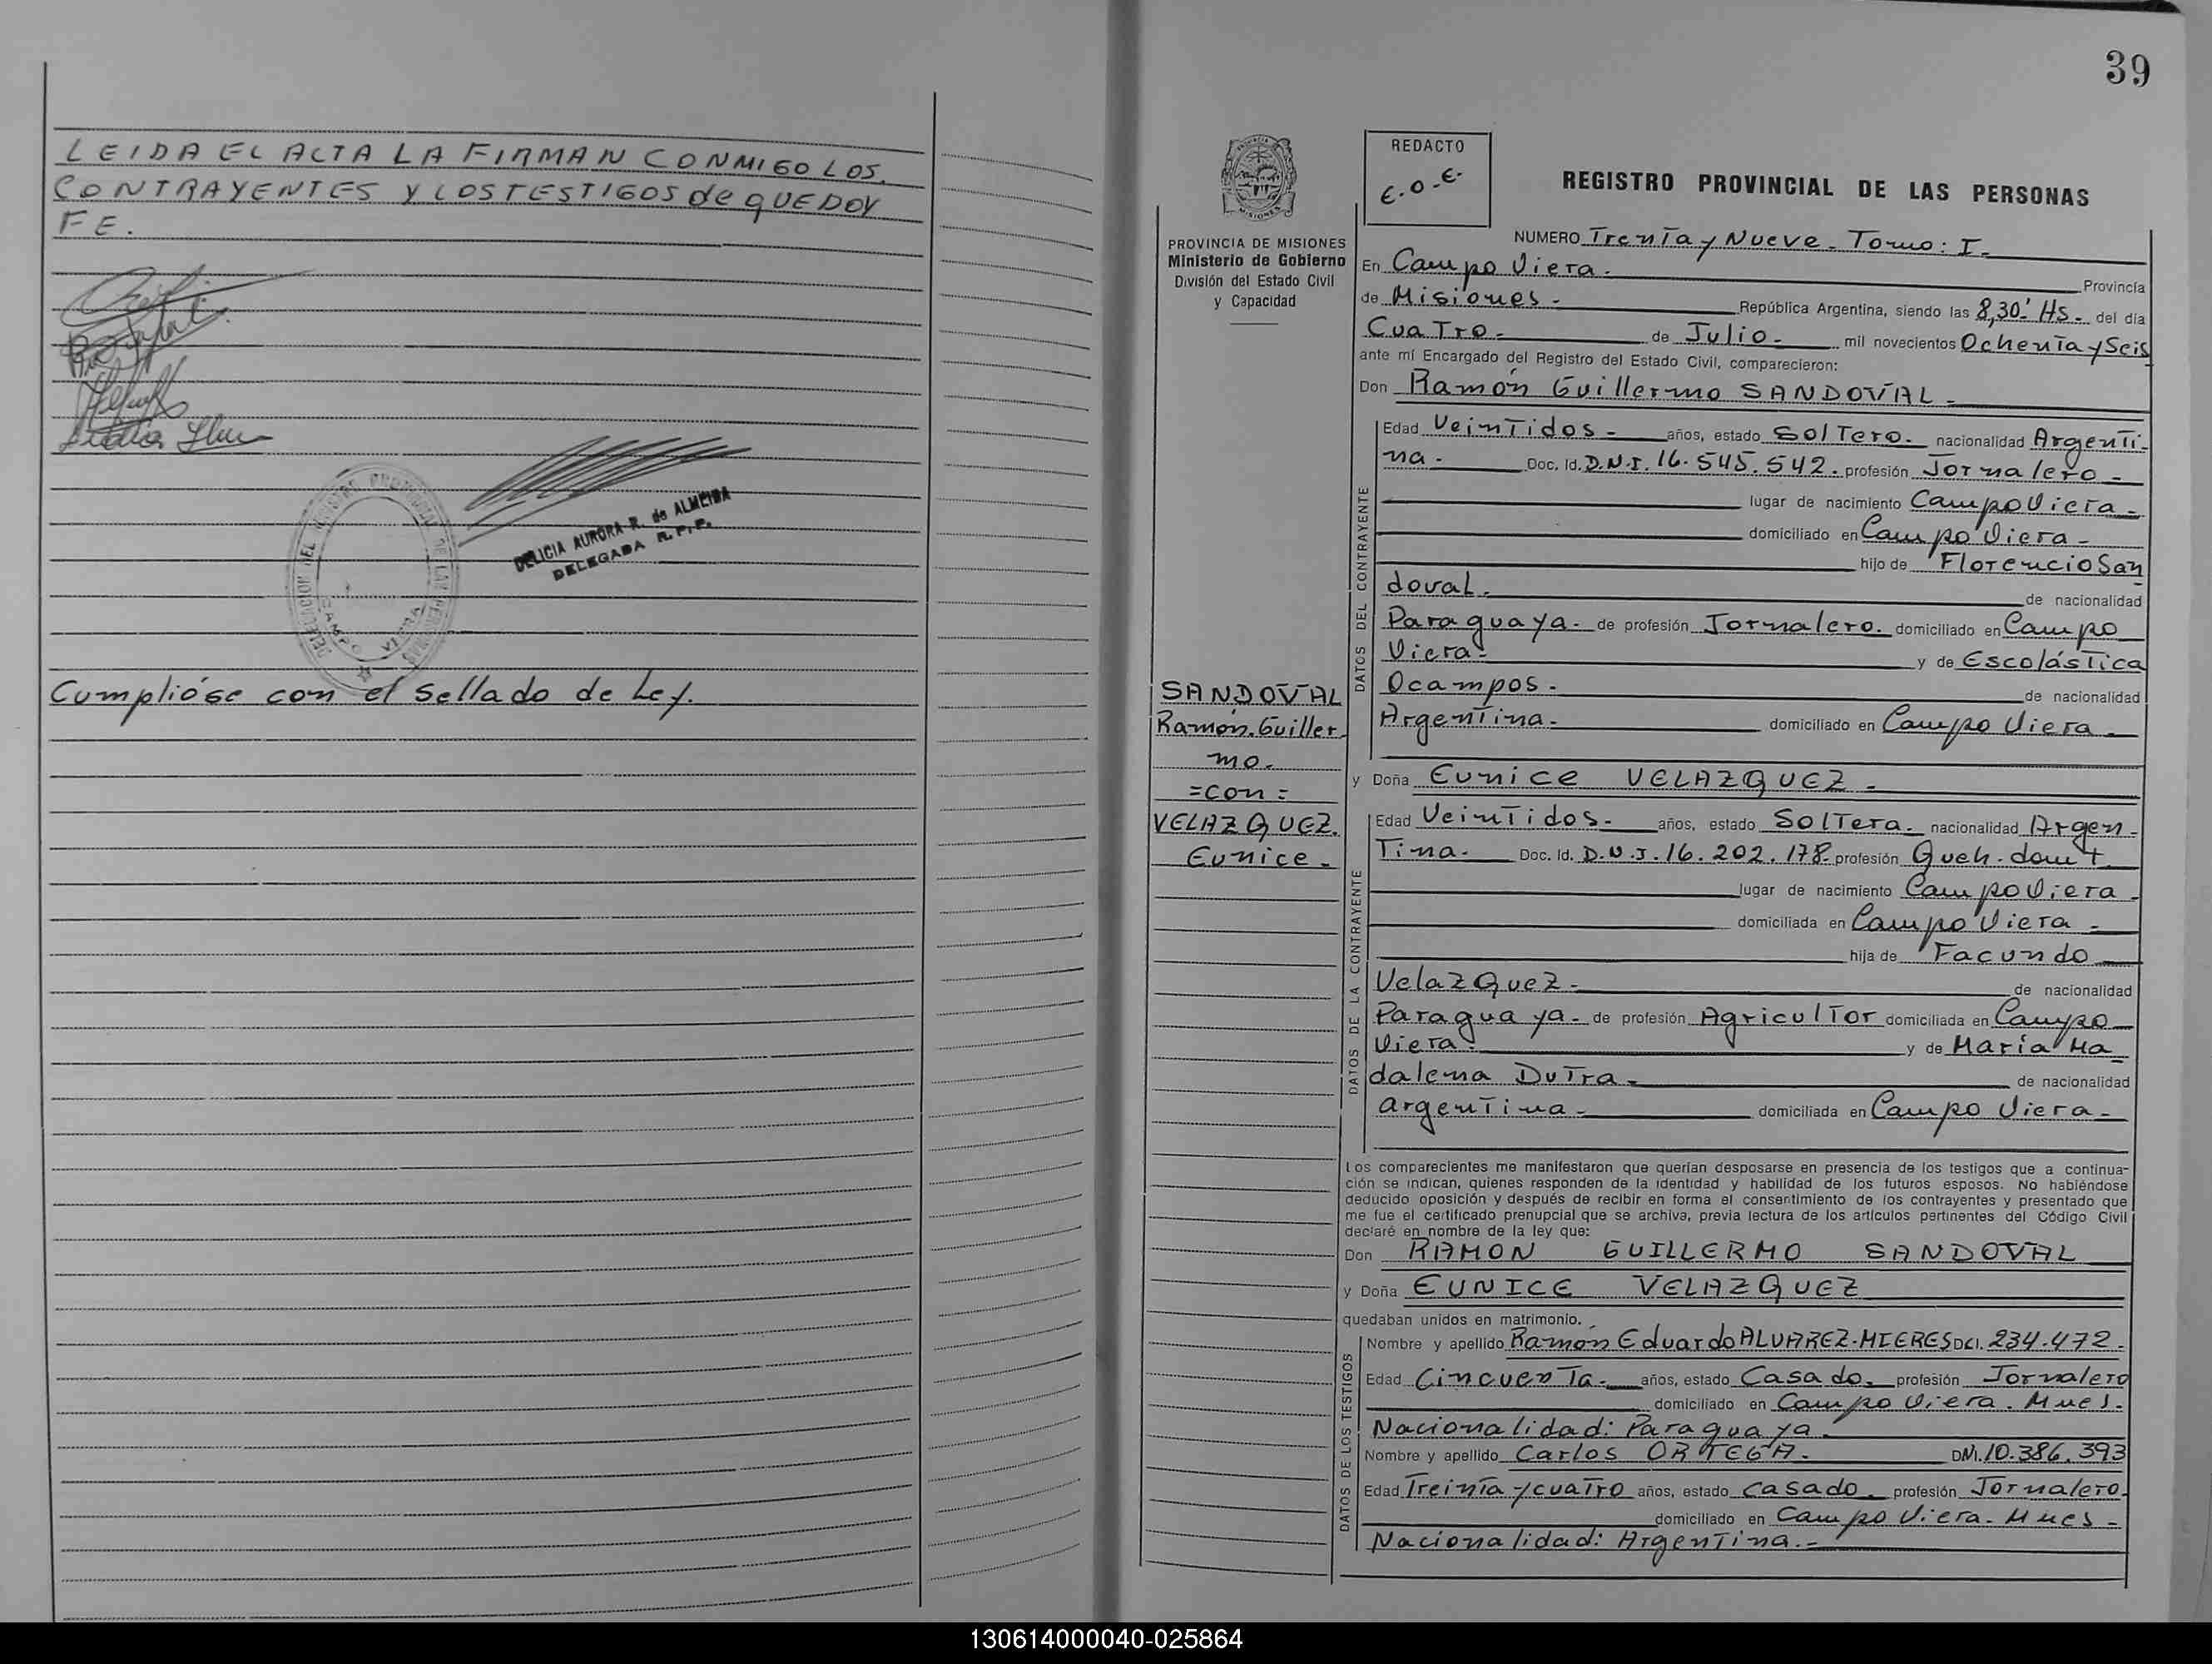 LEIDA EL ACTA LA FIRMAN CONMIGO LOS.
CONTRAYENTES Y LOS TESTIGOS de QUE DOY
FE.
DELICIA AURORA R. de ALMEIDA
DELEGADA R.P.P.
DELEGACION DEL REGISTRO PROVINCIAL DE LAS PERSONAS
CAMPO VIERA
Cumplióse con el sellado de Ley.
39
REDACTO
E.O.E.
REGISTRO PROVINCIAL DE LAS PERSONAS
PROVINCIA DE MISIONES
Ministerio de Gobierno
División del Estado Civil
y Capacidad
NUMERO Treinta y Nueve - Tomo: I -
En Campo Viera - Provincia
de Misiones - República Argentina, siendo las 8,30' Hs - del día
Cuatro - de Julio - mil novecientos Ochenta y Seis
ante mí Encargado del Registro del Estado Civil, comparecieron:
Don Ramón Guillermo SANDOVAL -
DATOS DEL CONTRAYENTE
Edad Veintidos - años, estado Soltero - nacionalidad Argenti-
na - Doc. Id. D.N.I. 16.545.542. profesión Jornalero -
lugar de nacimiento Campo Viera -
domiciliado en Campo Viera -
hijo de Florencio San
doval - de nacionalidad
Paraguaya - de profesión Jornalero. domiciliado en Campo
Viera - y de Escolástica
Ocampos - de nacionalidad
Argentina - domiciliado en Campo Viera -
SANDOVAL
Ramón Guiller
mo.
=con=
VELAZQUEZ.
Eunice -
y Doña Eunice VELAZQUEZ -
DATOS DE LA CONTRAYENTE
Edad Veintidos - años, estado Soltera - nacionalidad Argen-
Tina - Doc. Id. D.N.I. 16.202.178 - profesión Queh. dom
lugar de nacimiento Campo Viera -
domiciliada en Campo Viera -
hija de Facundo
Velazquez - de nacionalidad
Paraguaya - de profesión Agricultor domiciliada en Campo
Viera - y de María Ma-
dalena Dutra - de nacionalidad
argentina - domiciliada en Campo Viera -
Los comparecientes me manifestaron que querían desposarse en presencia de los testigos que a continua-
ción se indican, quienes responden de la identidad y habilidad de los futuros esposos. No habiéndose
deducido oposición y después de recibir en forma el consentimiento de los contrayentes y presentado que
me fue el certificado prenupcial que se archiva, previa lectura de los artículos pertinentes del Código Civil
declaré en nombre de la ley que:
Don RAMON GUILLERMO SANDOVAL
y Doña EUNICE VELAZQUEZ
quedaban unidos en matrimonio.
DATOS DE LOS TESTIGOS
Nombre y apellido Ramón Eduardo ALVAREZ-MIERES DCI. 234.472 -
Edad Cincuenta - años, estado Casado. profesión Jornalero
domiciliado en Campo Viera. Mnes.
Nacionalidad: Paraguaya -
Nombre y apellido Carlos ORTEGA - DNI. 10.386.393
Edad Treinta y cuatro años, estado casado. profesión Jornalero.
domiciliado en Campo Viera - Mnes -
Nacionalidad: Argentina. -
130614000040-025864